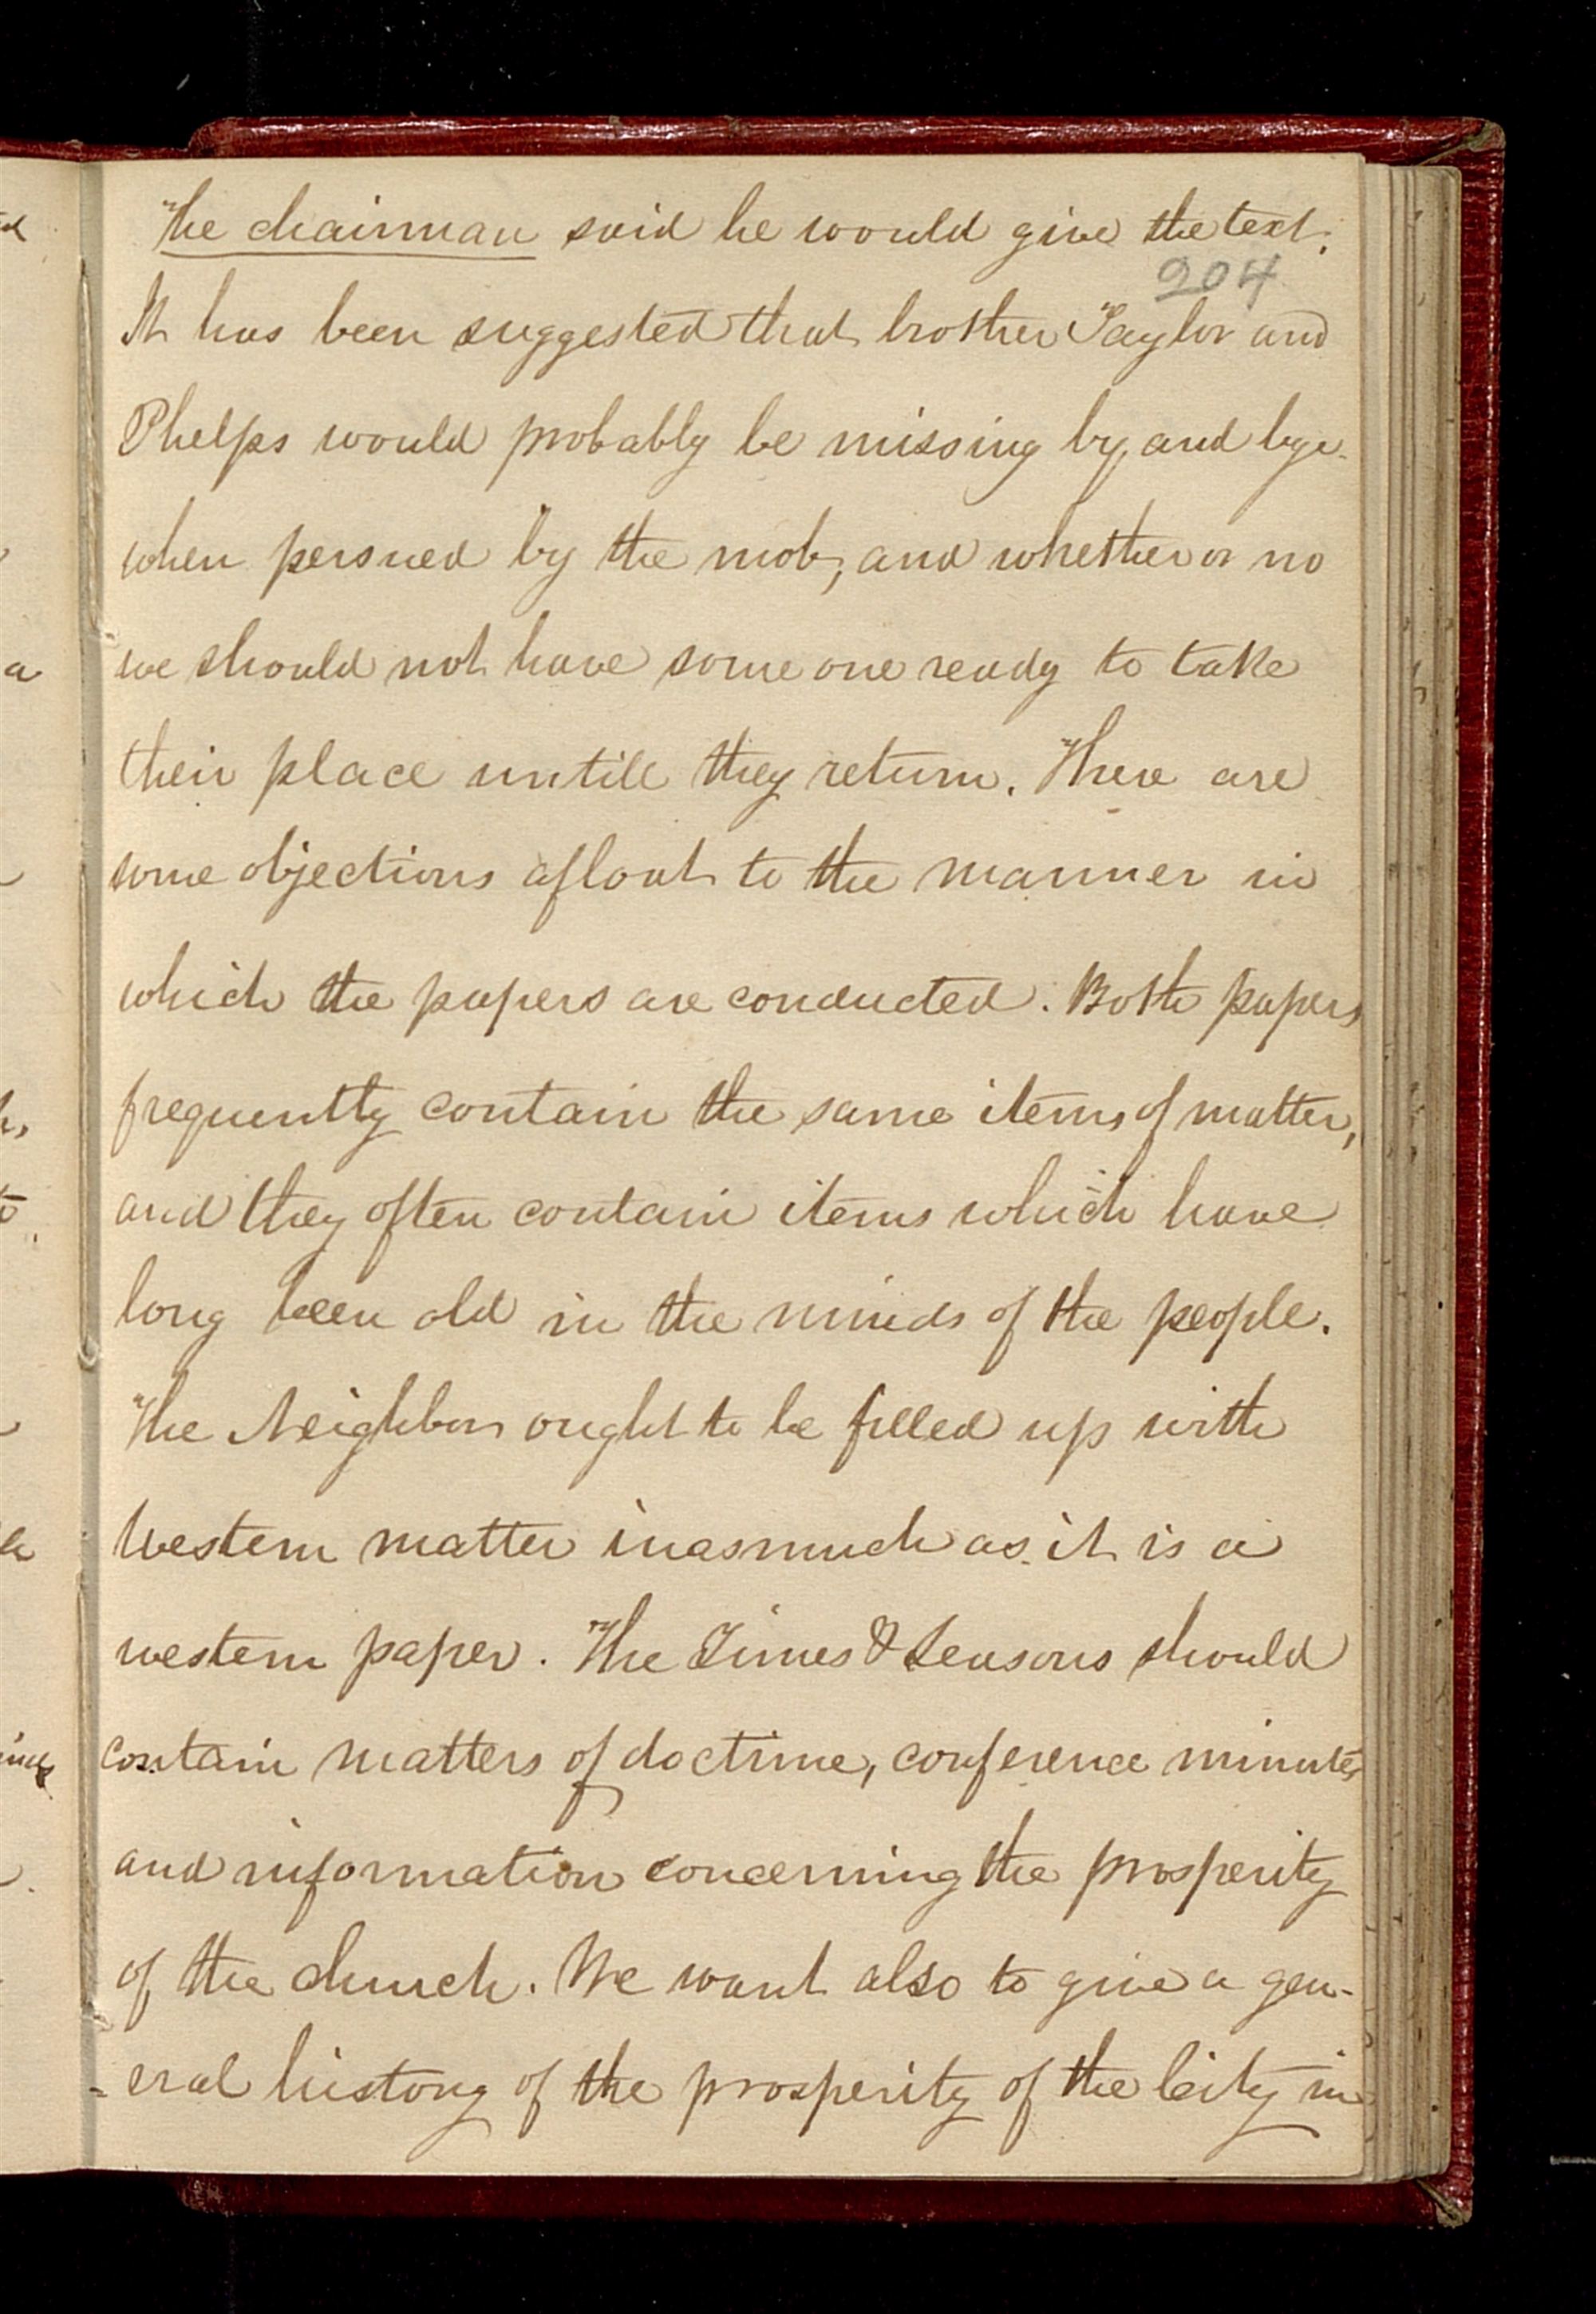 The chairman said he would give the text.
204
It has been suggested that brother Taylor and
Phelps would probably be missing by and bye
when persued by the mob, and whether or no
we should not have some one ready to take
their place untill they return. There are
some objections afloat to the manner in
which the papers are conducted. Both papers
frequently contain the same items of matter,
and they often contain items which have
long been old in the minds of the people.
The Neighbor ought to be filled up with
western matter inasmuch as it is a
western paper. The Times & Seasons should
contain matters of doctrine, conference minutes
and information concerning the prosperity
of the church. We want also to give a gen-
-eral history of the prosperity of the City in